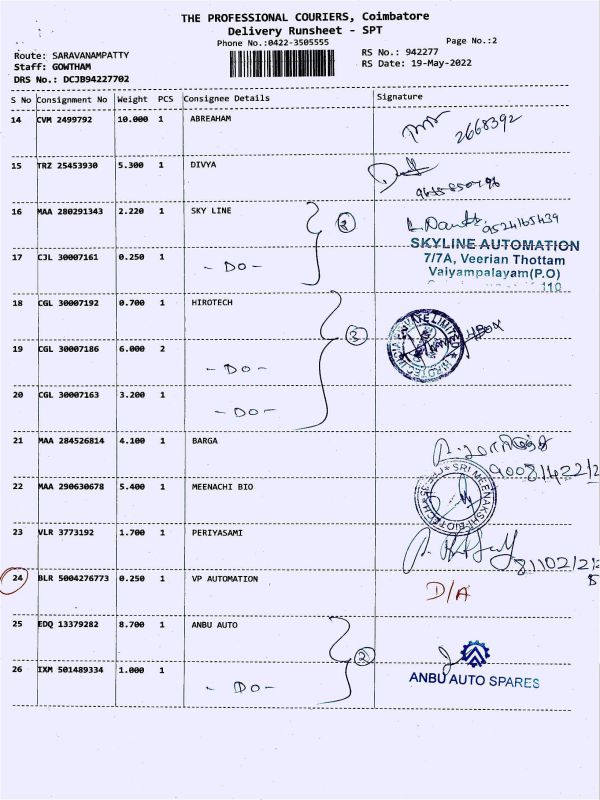 THE PROFESSIONAL COURIERS, Coimbatore
Delivery Runsheet - SPT
Phone No.:0422-3505555
Page No.:2
Route: SARAVANAMPATTY
RS No.: 942277
Staff: GOWTHAM
RS Date: 19-May-2022
DRS No.: DCJB94227702
S No Consignment No Weight PCS Consignee Details Signature
14 CVM 2499792 10.000 1 ABREAHAM
2668392
15 TRZ 25453930 5.300 1 DIVYA
16 MAA 280291343 2.220 1 SKY LINE
9524165439
SKYLINE AUTOMATION
7/7A, Veerian Thottam
Vaiyampalayam(P.O)
110
17 CJL 30007161 0.250 1 - DO -
18 CGL 30007192 0.700 1 HIROTECH
3
19 CGL 30007186 6.000 2 - DO -
20 CGL 30007163 3.200 1 - DO -
21 MAA 284526814 4.100 1 BARGA
22 MAA 290630678 5.400 1 MEENACHI BIO
SRI MEENAKSHI BIOTECH
23 VLR 3773192 1.700 1 PERIYASAMI
24 BLR 5004276773 0.250 1 VP AUTOMATION D/A
25 EDQ 13379282 8.700 1 ANBU AUTO
2
26 IXM 501489334 1.000 1 - DO -
ANBU AUTO SPARES